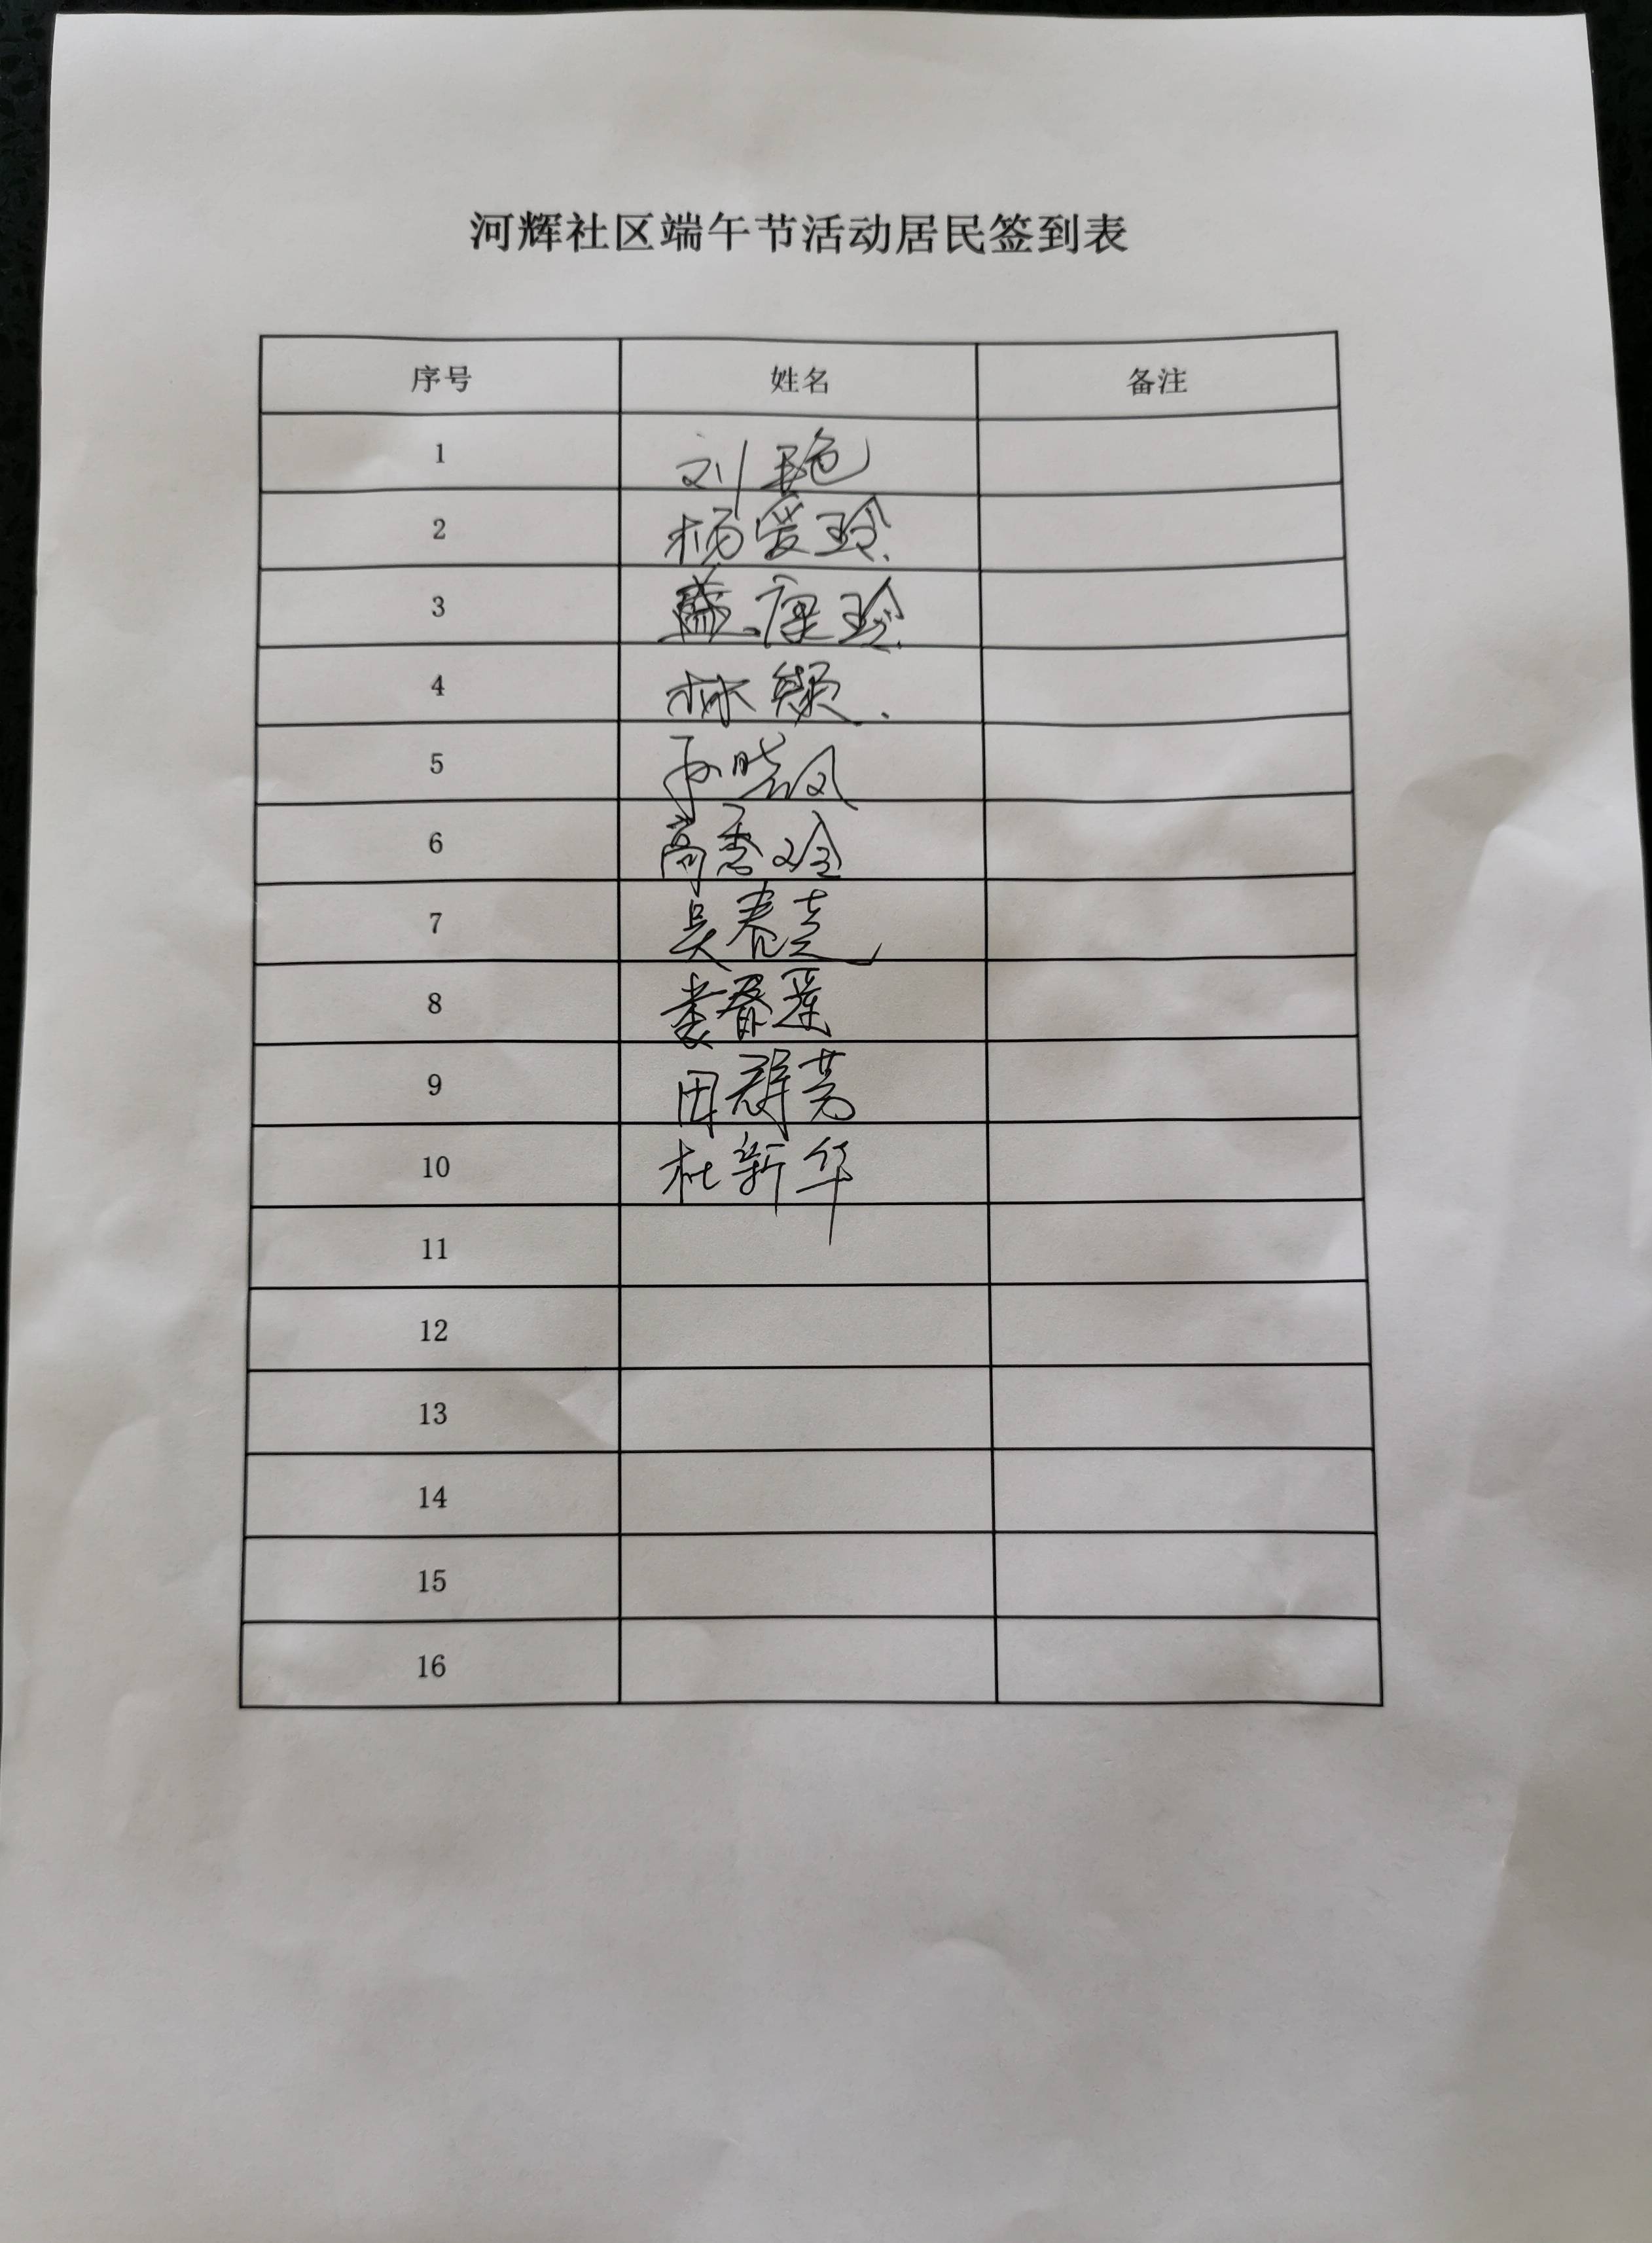 河辉社区端午节活动居民签到表
序号 姓名 备注
1 刘艳
2 杨爱玲
3 盛康玲
4 林颖
5 孙晓凤
6 高香玲
7 吴春意
8 娄春莲
9 田群芳
10 杜新华
11
12
13
14
15
16